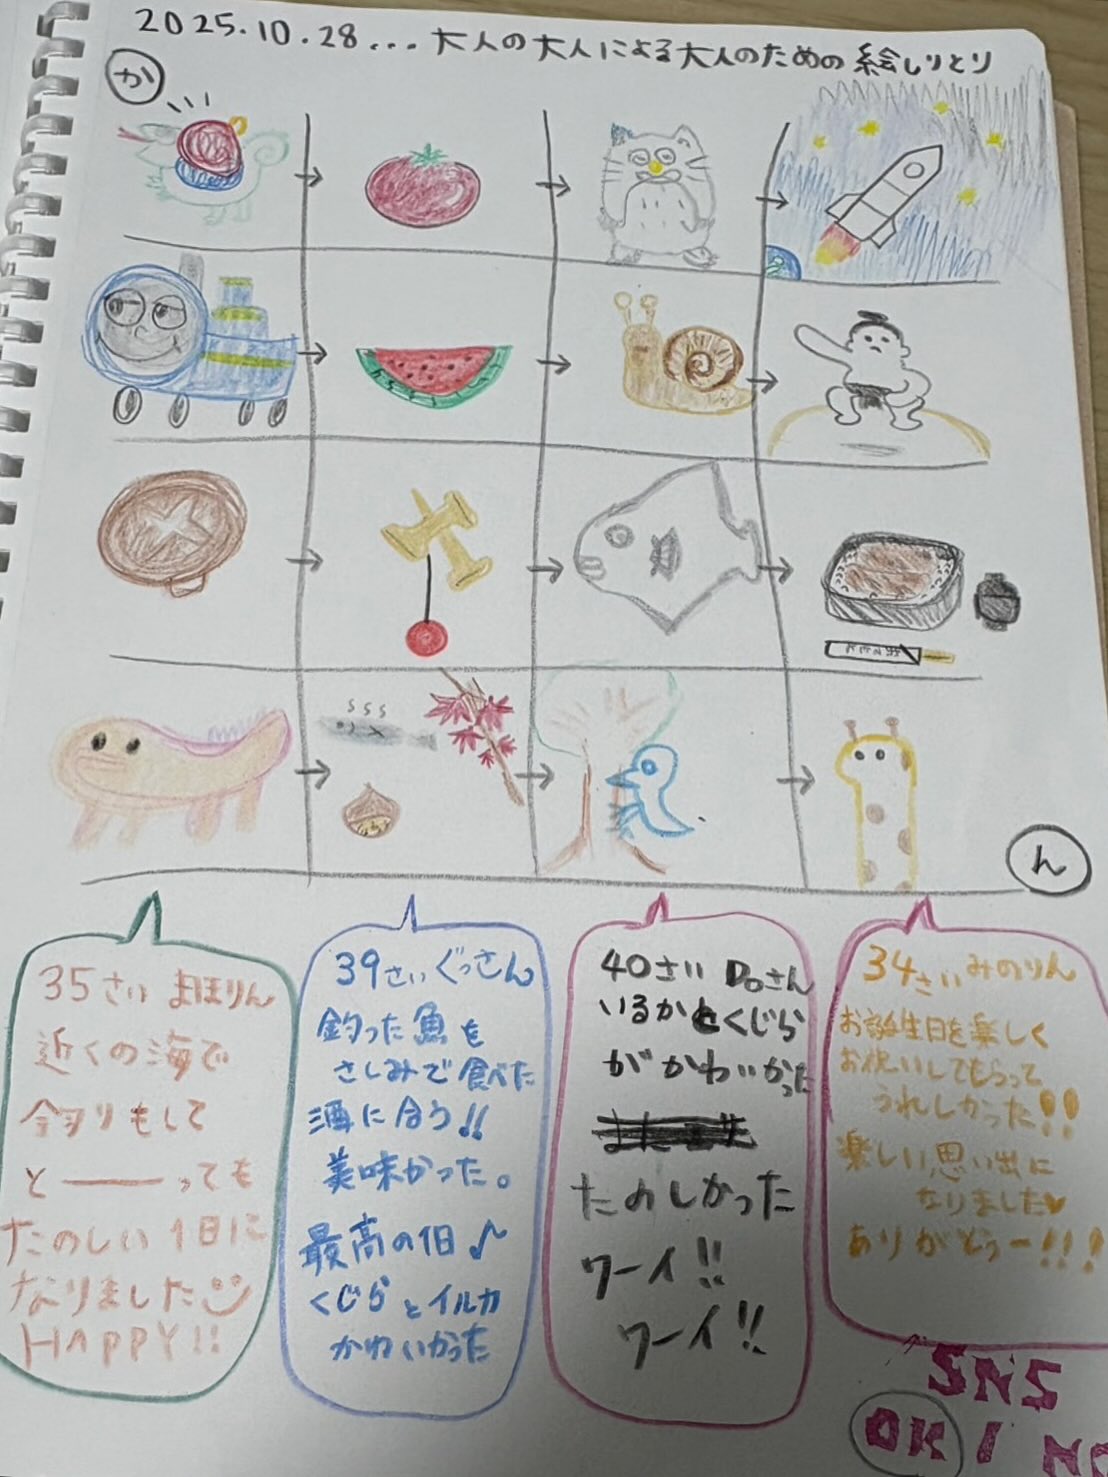 2025.10.28...大人の大人による大人のための絵しりとり
か
ん
35さい まほりん
近くの海で
釣りもして
と――っても
たのしい1日に
なりました
HAPPY!!
39さい ぐっさん
釣った魚を
さしみで食べた
酒に合う!!
美味かった。
最高の1日♪
くじらとイルカ
かわいかった
40さい Doさん
いるかとくじら
がかわいかった
たのしかった
ワーイ!!
ワーイ!!
34さい みのりん
お誕生日を楽しく
お祝いしてもらって
うれしかった!!
楽しい思い出に
なりました♥
ありがとうー!!!
SNS
OK / NG